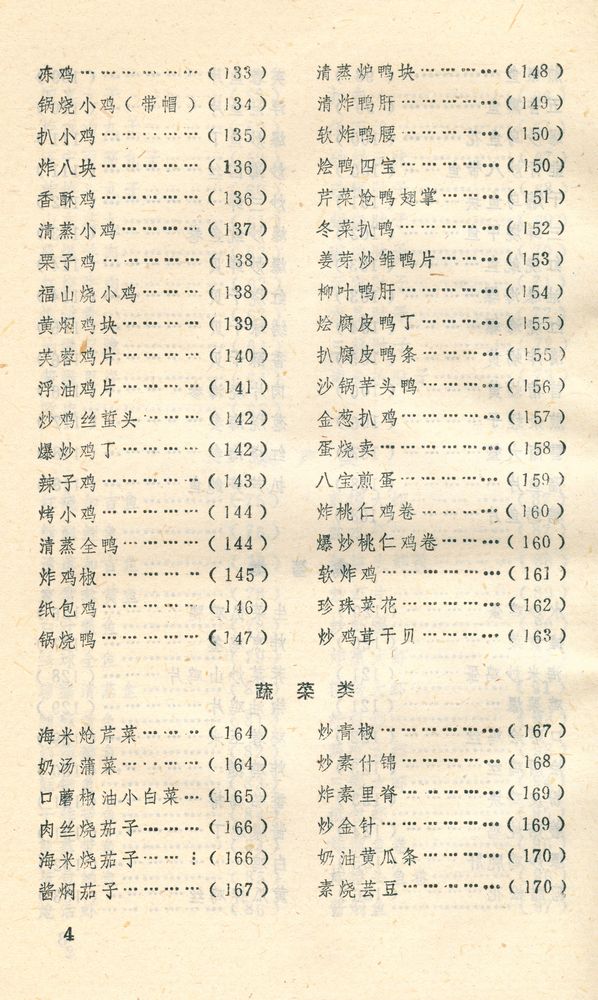 冻鸡………………(133)
锅烧小鸡(带帽)(134)
扒小鸡……………(135)
炸八块……………(136)
香酥鸡……………(136)
清蒸小鸡…………(137)
栗子鸡……………(138)
福山烧小鸡………(138)
黄焖鸡块…………(139)
芙蓉鸡片…………(140)
浮油鸡片…………(141)
炒鸡丝蜇头………(142)
爆炒鸡丁…………(142)
辣子鸡……………(143)
烤小鸡……………(144)
清蒸全鸭…………(144)
炸鸡椒……………(145)
纸包鸡……………(146)
锅烧鸭……………(147)
清蒸炉鸭块………(148)
清炸鸭肝…………(149)
软炸鸭腰…………(150)
烩鸭四宝…………(150)
芹菜炝鸭翅掌……(151)
冬菜扒鸭…………(152)
姜芽炒雏鸭片……(153)
柳叶鸭肝…………(154)
烩腐皮鸭丁………(155)
扒腐皮鸭条………(155)
沙锅芋头鸭………(156)
金葱扒鸡…………(157)
蛋烧卖……………(158)
八宝煎蛋…………(159)
炸桃仁鸡卷………(160)
爆炒桃仁鸡卷……(160)
软炸鸡……………(161)
珍珠菜花…………(162)
炒鸡茸干贝………(163)
蔬菜类
海米炝芹菜………(164)
奶汤蒲菜…………(164)
口蘑椒油小白菜…(165)
肉丝烧茄子………(166)
海米烧茄子………(166)
酱焖茄子…………(167)
炒青椒……………(167)
炒素什锦…………(168)
炸素里脊…………(169)
炒金针……………(169)
奶油黄瓜条………(170)
素烧芸豆…………(170)
4